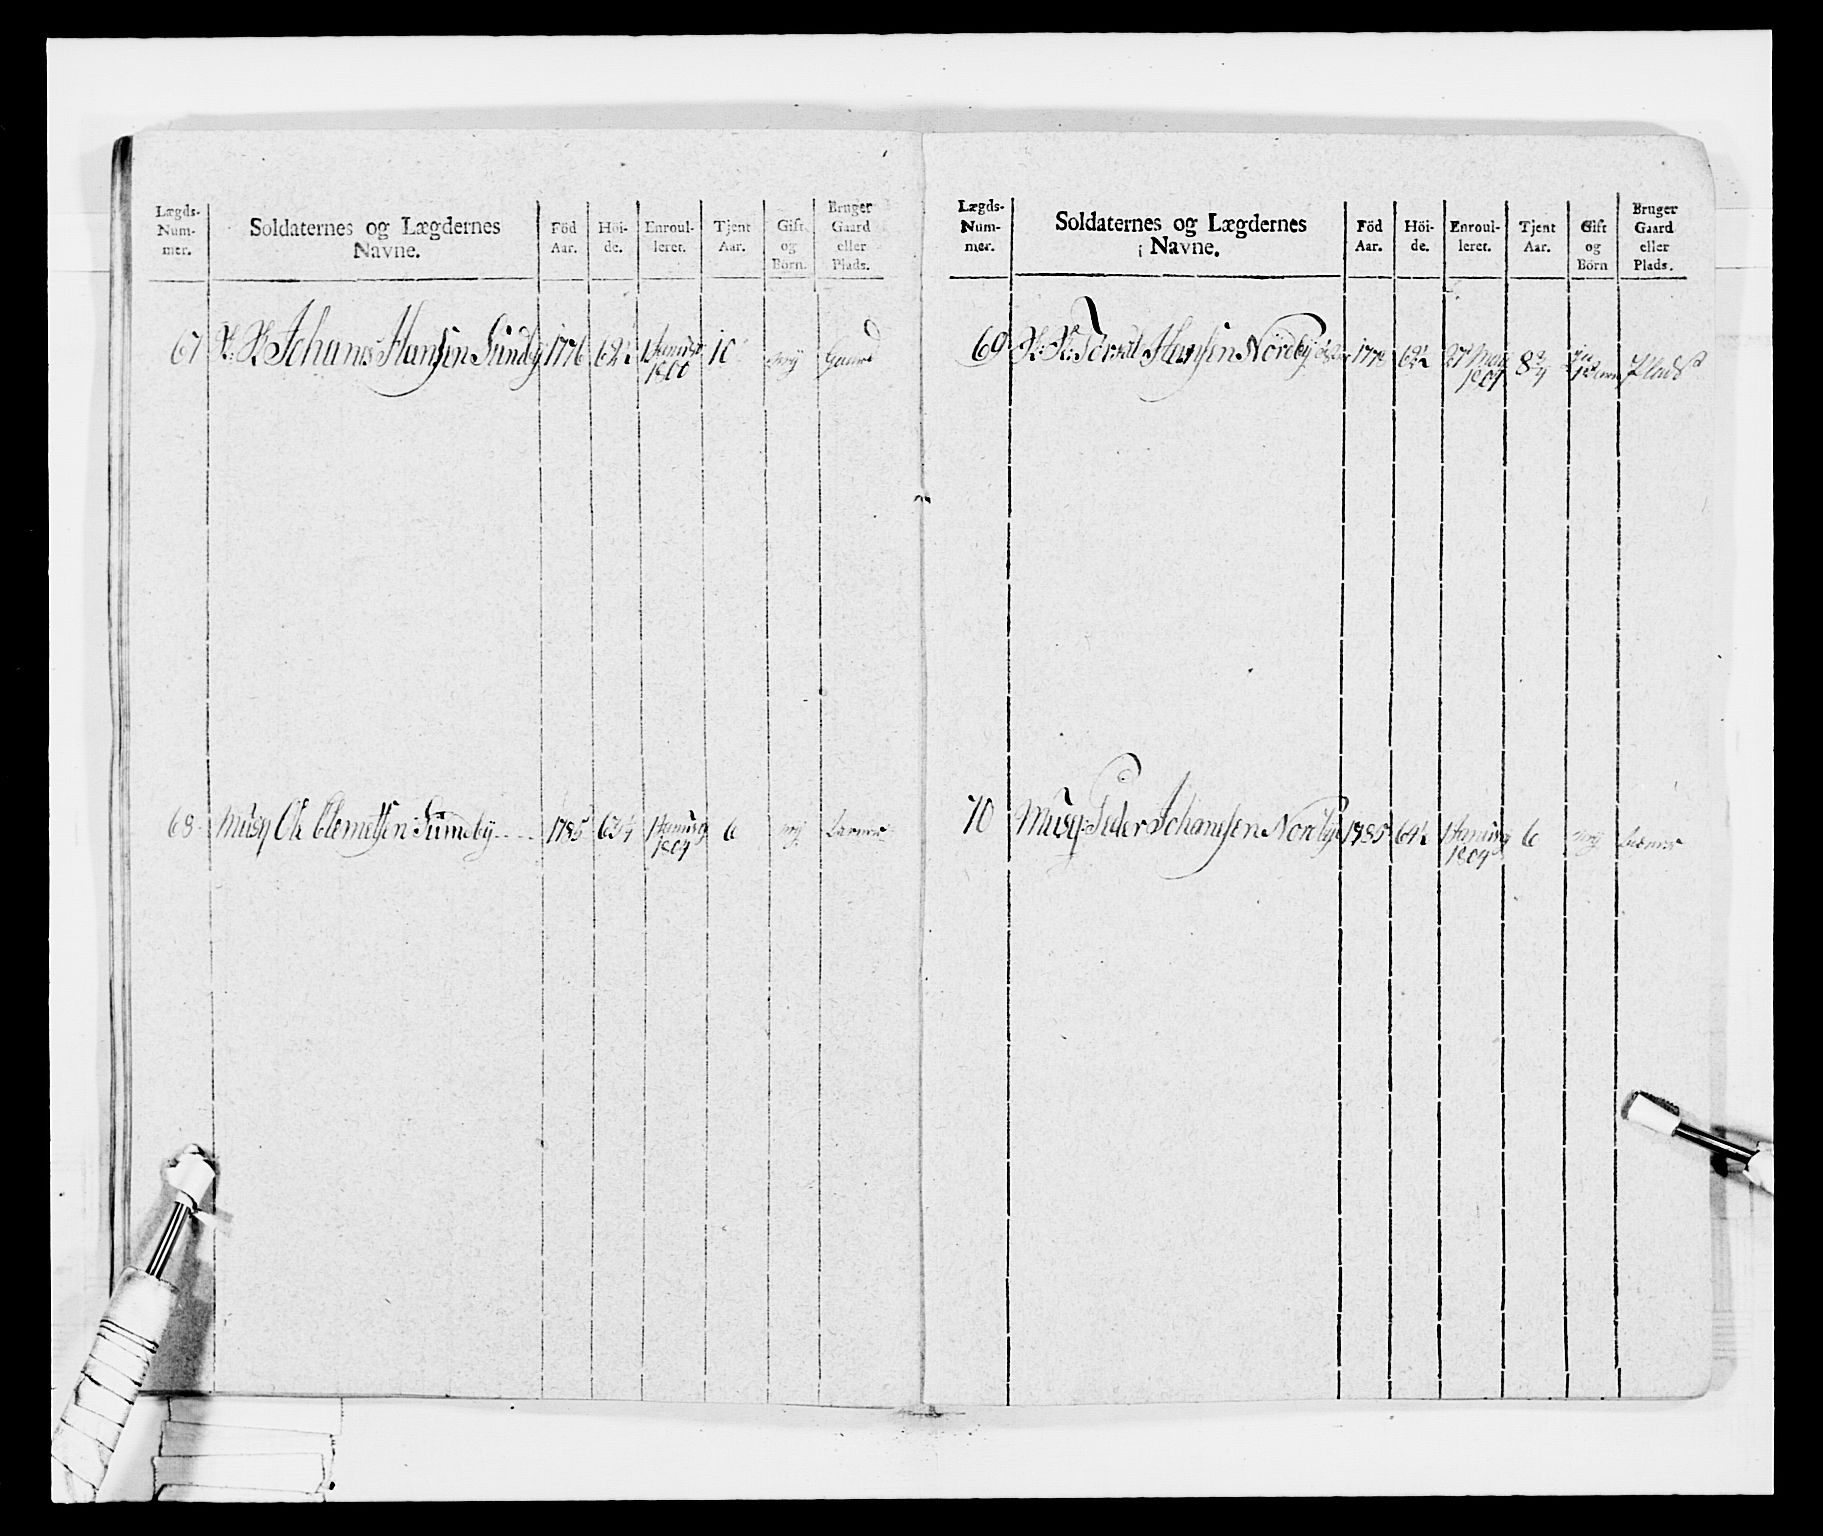 Lægds-
Num-
mer.
Soldaternes og Lægdernes
Navne.
Föd
Aar.
Höi-
de.
Enroul-
leret.
Tjent
Aar.
Gift
og
Börn.
Bruger
Gaard
eller
Plads.
67 Johannes Hansen Sundby 1776 62½ 1 Januar 10 Gaard
1800
68 Musq Ole Clemetsen Sundbÿ 1785 1 Januar 6
1804
Lægds-
Num-
mer.
Soldaternes og Lægdernes
Navne.
Föd
Aar.
Höi-
de.
Enroul-
leret.
Tjent
Aar.
Gift
og
Börn
Bruger
Gaard
eller
Plads.
69 Hansen Nordbÿ 177 62½ 27 May 8¾ Plads
70 Musq: Peder Johannesen Nordbÿe 1785 64½ 1 Januar 6
1804